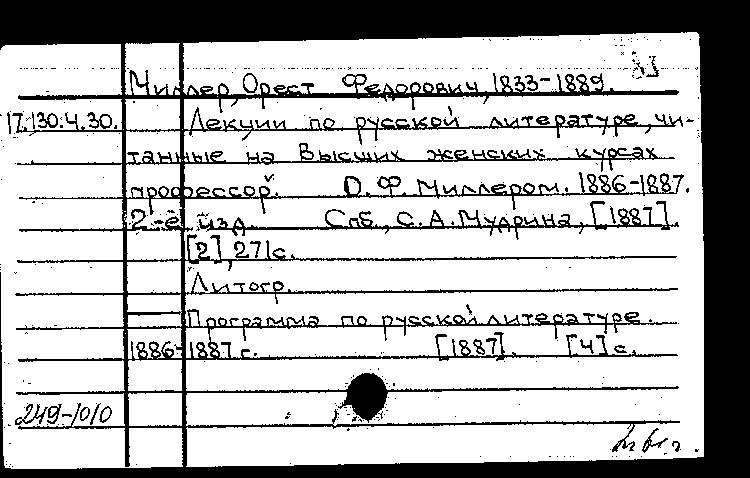 Миллер, Орест Федорович, 1833-1889.
17.130.4.30. Лекции по русской литературе, чи-
танные на Высших женских курсах
профессор. О.Ф. Миллером. 1886-1887.
2-е изд. Спб., С.А. Мудрина, [1887].
[2], 271с.
Литогр.
Программа по русской литературе.
1886-1887 г. [1887]. [4] с.
249-1010